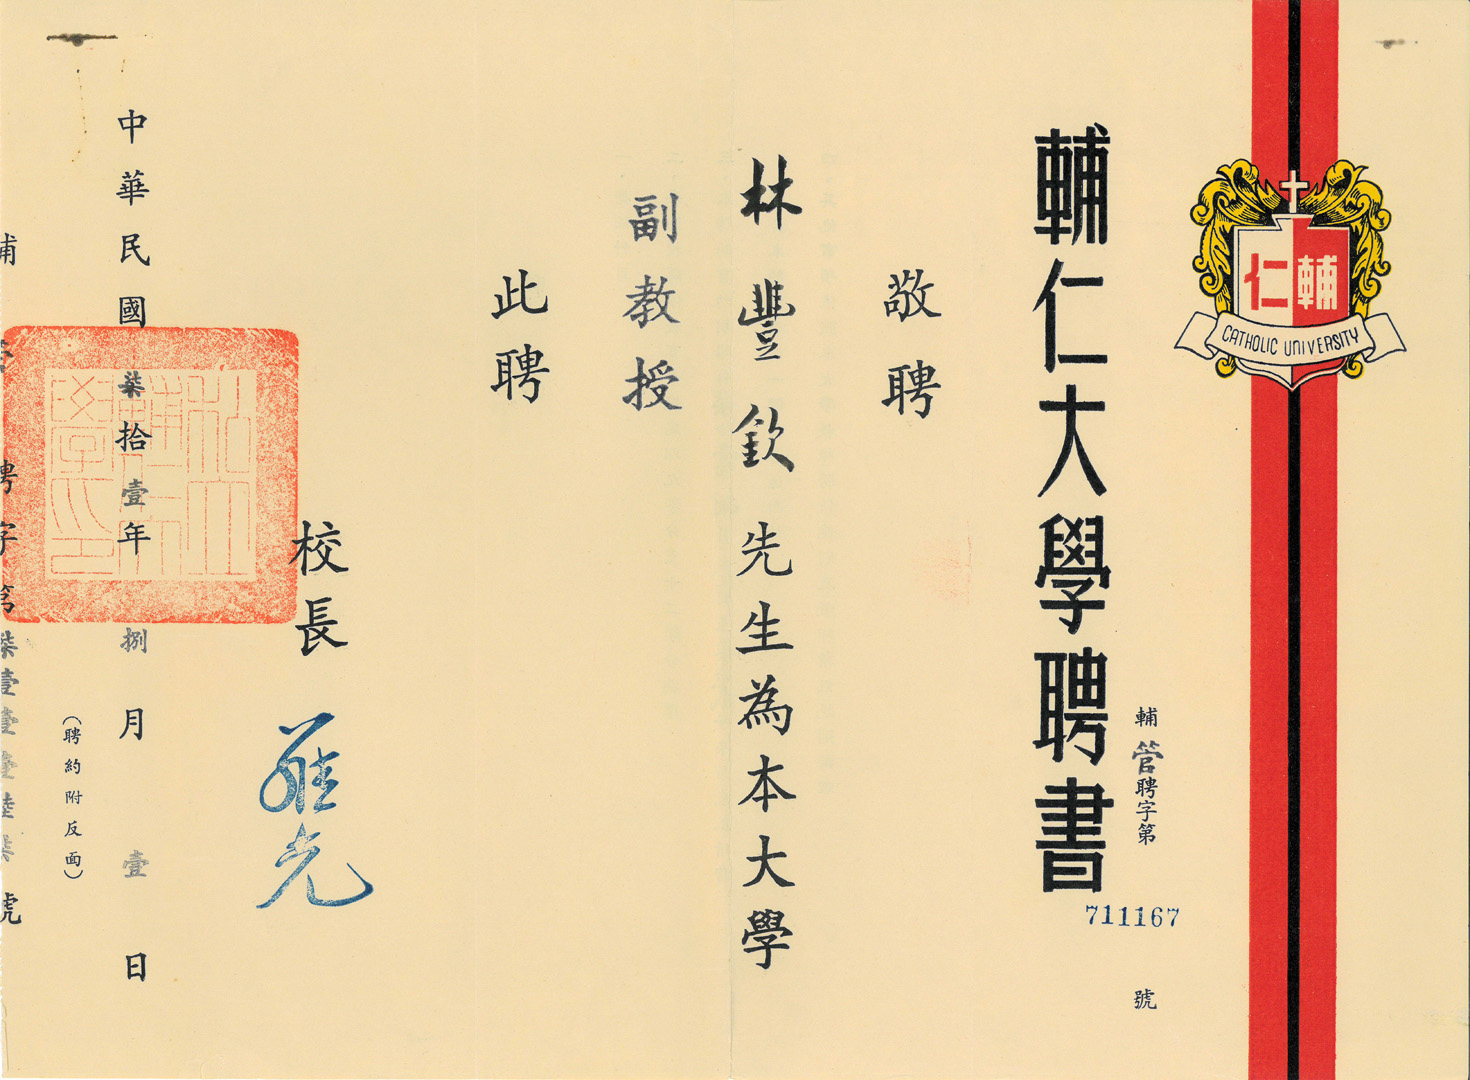 仁輔
CATHOLIC UNIVERSITY
輔管聘字第 711167 號
輔仁大學聘書
敬聘
林豐欽先生為本大學
副教授
此聘
校長
中華民國柒拾壹年捌月壹日
(聘約附反面)
聘字第柒壹壹壹陸柒號